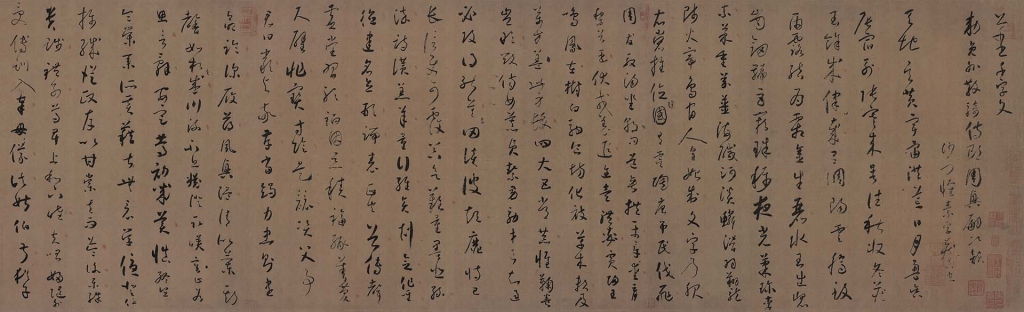 草書千字文
敕員外散騎侍郎周興嗣次韻
沙門懷素
天地玄黃宇宙洪荒日月盈昃
辰宿列張寒來暑往秋收冬藏
閏餘成歲律呂調陽雲騰致
雨露結爲霜金生麗水玉出崑
崗劍號巨闕珠稱夜光菓珍李
柰菜重芥薑海鹹河淡鱗潛羽翔龍
師火帝鳥官人皇始制文字乃服
衣裳推位讓國有虞陶唐弔民伐罪
周發殷湯坐朝問道垂拱平章愛育
黎首臣伏戎羌遐邇壹體率賓歸王
鳴鳳在樹白駒食場化被草木賴及
萬方蓋此身髮四大五常恭惟鞠養
豈敢毀傷女慕貞潔男效才良知過
必改得能莫忘罔談彼短靡恃己
長信使可覆器欲難量墨悲絲
染詩讚羔羊景行維賢剋念作聖
德建名立形端表正空谷傳聲
虛堂習聽禍因惡積福緣善慶
尺璧非寶寸陰是競資父事
君曰嚴與敬孝當竭力忠則盡
命臨深履薄夙興溫凊似蘭斯
馨如松之盛川流不息淵澄取映容止若
思言辭安定篤初誠美慎終宜
令榮業所基籍甚無竟學優登仕
攝職從政存以甘棠去而益詠樂殊
貴賤禮別尊卑上和下睦夫唱婦隨
外受傅訓入奉母儀諸姑伯叔猶子